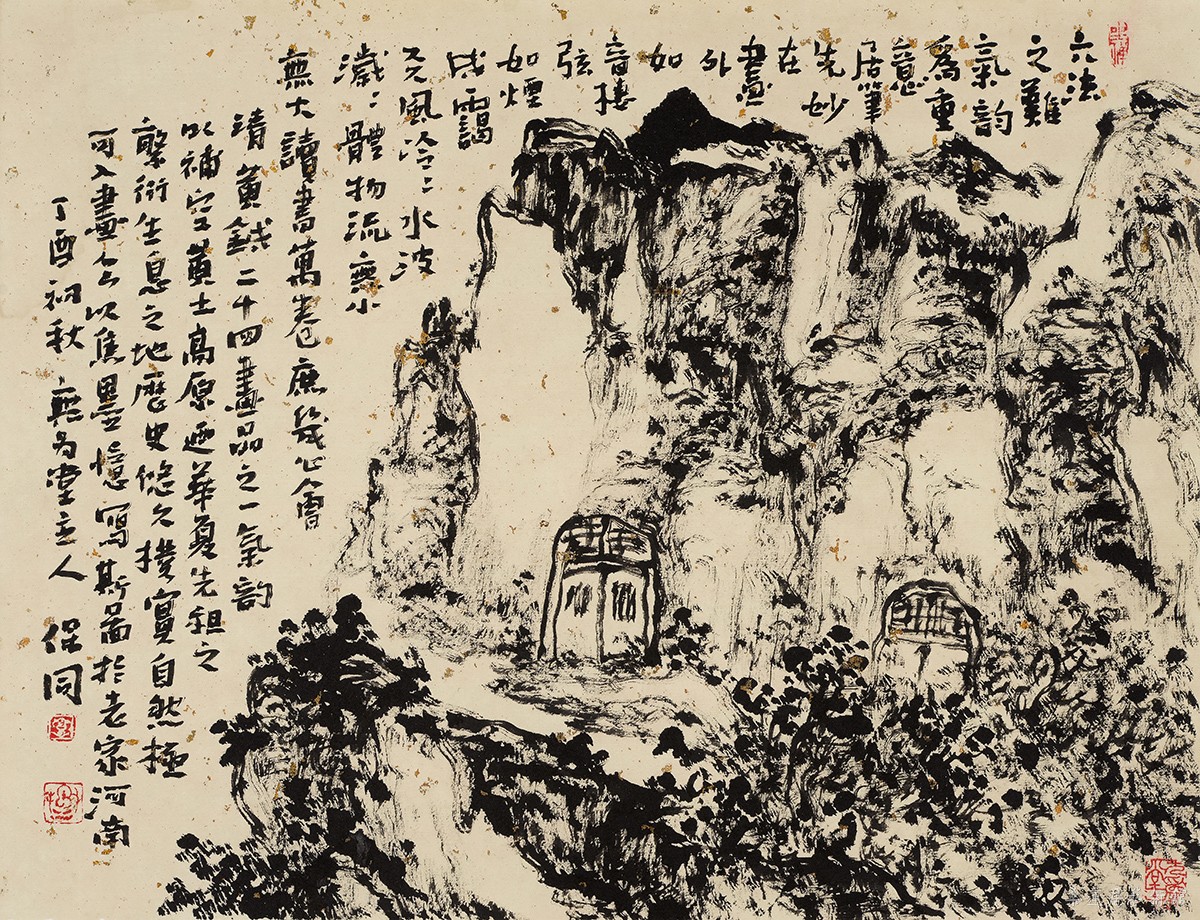 六法
之難
氣韵
為重
意
居筆
先妙
在
畫
外
如
音棲
弦
如煙
成靄
天風泠〻水波
濊〻體物流無小
無大讀書萬卷庶幾心會
清黃鉞二十四畫品之一氣韵
以補空黃土高原迺華夏先祖之
繁衍生息之地歷史悠久撲實自然極
可入畫余以焦墨憶寫斯圖於老家河南
丁酉初秋 無為堂主人 保同